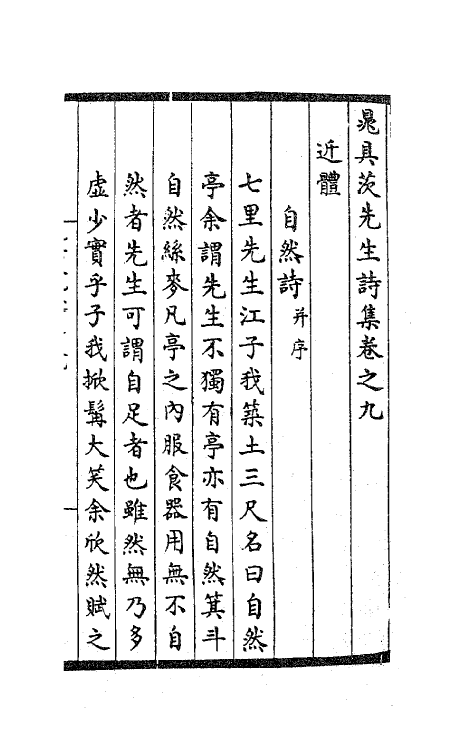 晁具茨先生詩集卷之九
近體
自然詩 并序
七里先生江子我築土三尺名曰自然
亭余謂先生不獨有亭亦有自然箕斗
自然絲麥凡亭之內服食器用無不自
然者先生可謂自足者也雖然無乃多
虛少實乎子我掀髯大笑余欣然賦之